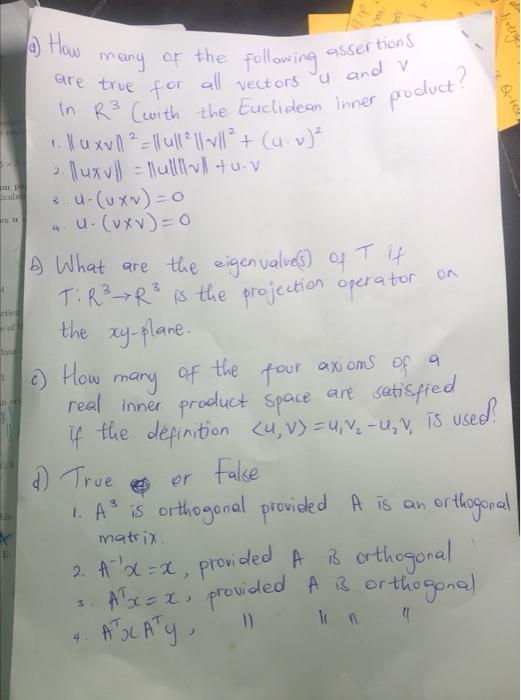 a) How many of the following assertions
are true for all vectors u and v
in R³ (with the Euclidean inner product?
1. ||uxv||² = ||u||²||v||² + (u·v)²
2. ||uxv|| = ||u||||v|| + u·v
3. u·(uxv)=0
4. u·(vxv)=0
b) What are the eigenvalue(s) of T if
T: R³→R³ is the projection operator on
the xy-plane.
c) How many of the four axioms of a
real inner product space are satisfied
if the definition <u,v> = u₁v₂ - u₂v, is used?
d) True or False
1. A³ is orthogonal provided A is an orthogonal
matrix.
2. A⁻¹x = x, provided A is orthogonal
3. Aᵀx = x, provided A is orthogonal
4. AᵀxAᵀy, " " " "